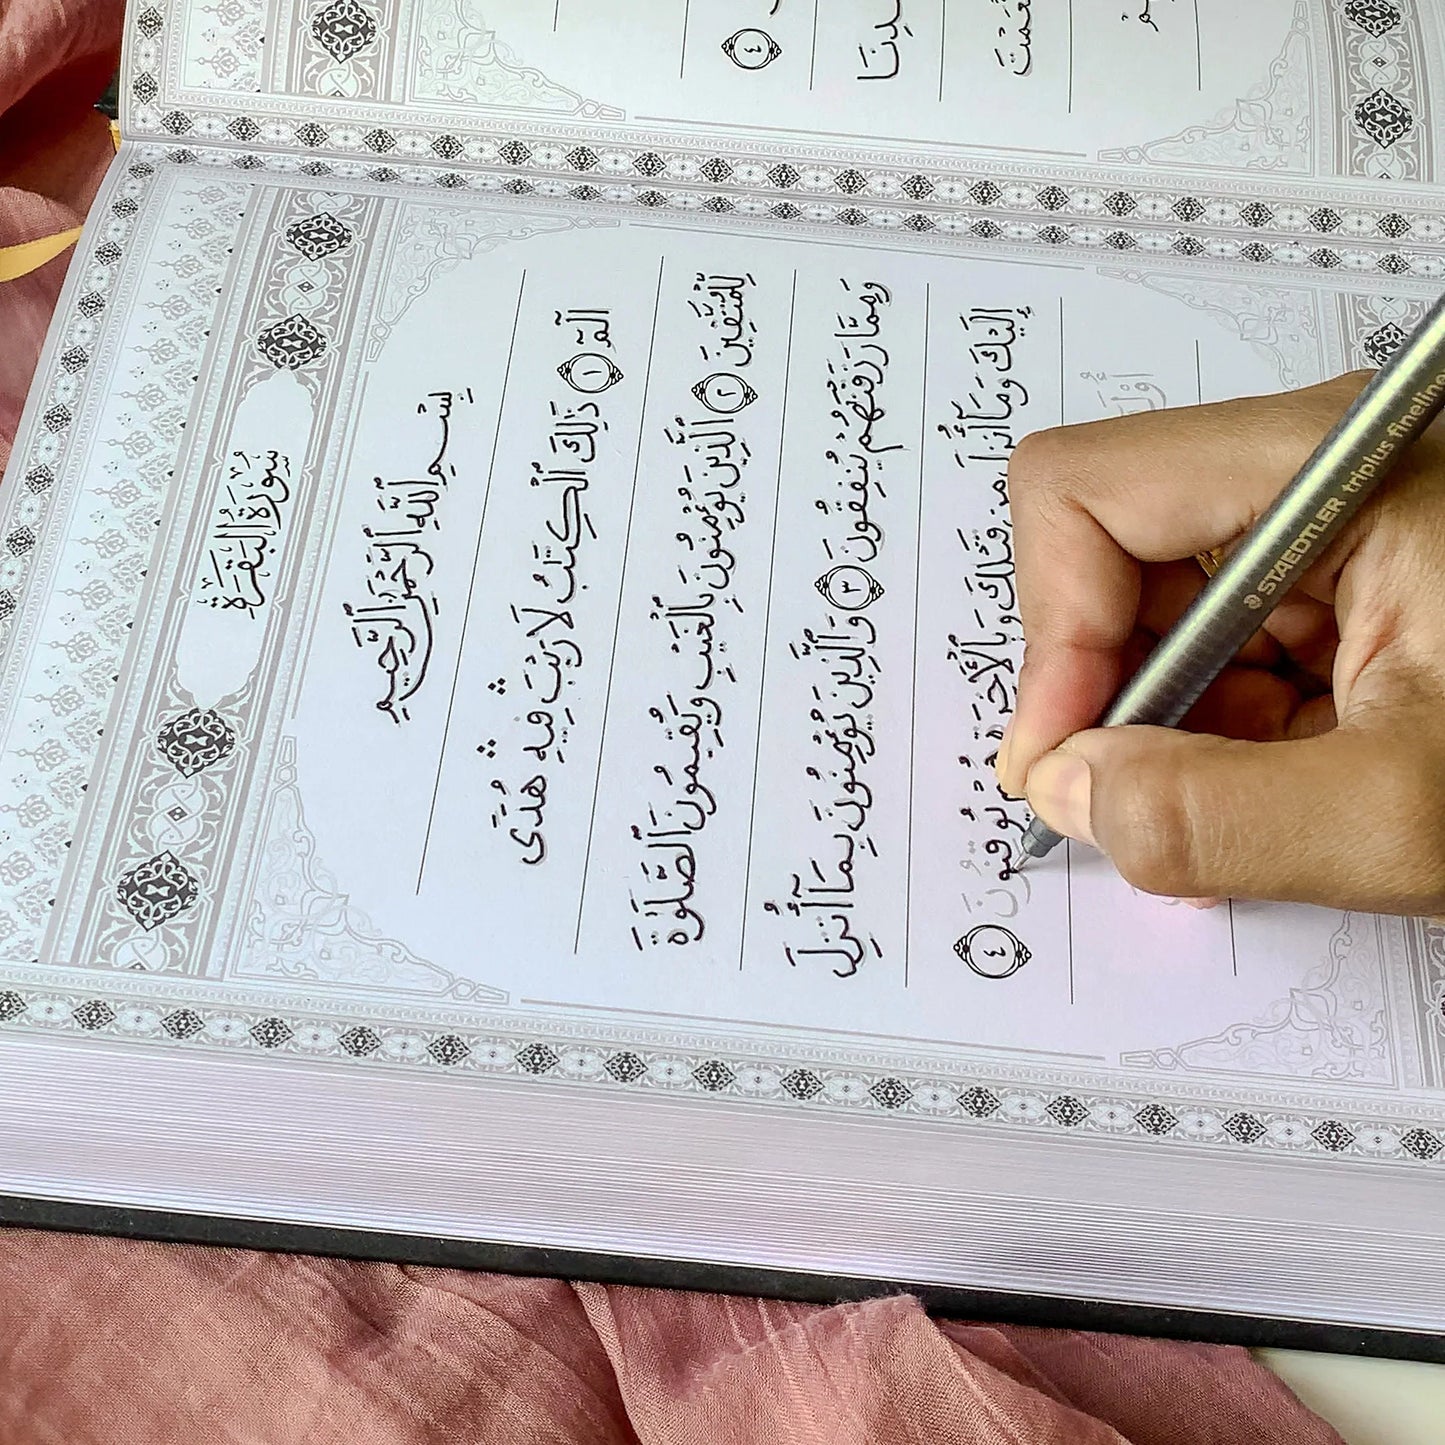 سُورَةُ الْبَقَرَةِ
بِسْمِ ٱللَّهِ ٱلرَّحْمَٰنِ ٱلرَّحِيمِ
الٓمٓ ١ ذَٰلِكَ ٱلْكِتَٰبُ لَا رَيْبَ ۛ فِيهِ ۛ هُدًى
لِّلْمُتَّقِينَ ٢ ٱلَّذِينَ يُؤْمِنُونَ بِٱلْغَيْبِ وَيُقِيمُونَ ٱلصَّلَوٰةَ
وَمِمَّا رَزَقْنَٰهُمْ يُنفِقُونَ ٣ وَٱلَّذِينَ يُؤْمِنُونَ بِمَآ أُنزِلَ
إِلَيْكَ وَمَآ أُنزِلَ مِن قَبْلِكَ وَبِٱلْأَخِرَةِ هُمْ يُوقِنُونَ ٤
STAEDTLER triplus fineliner